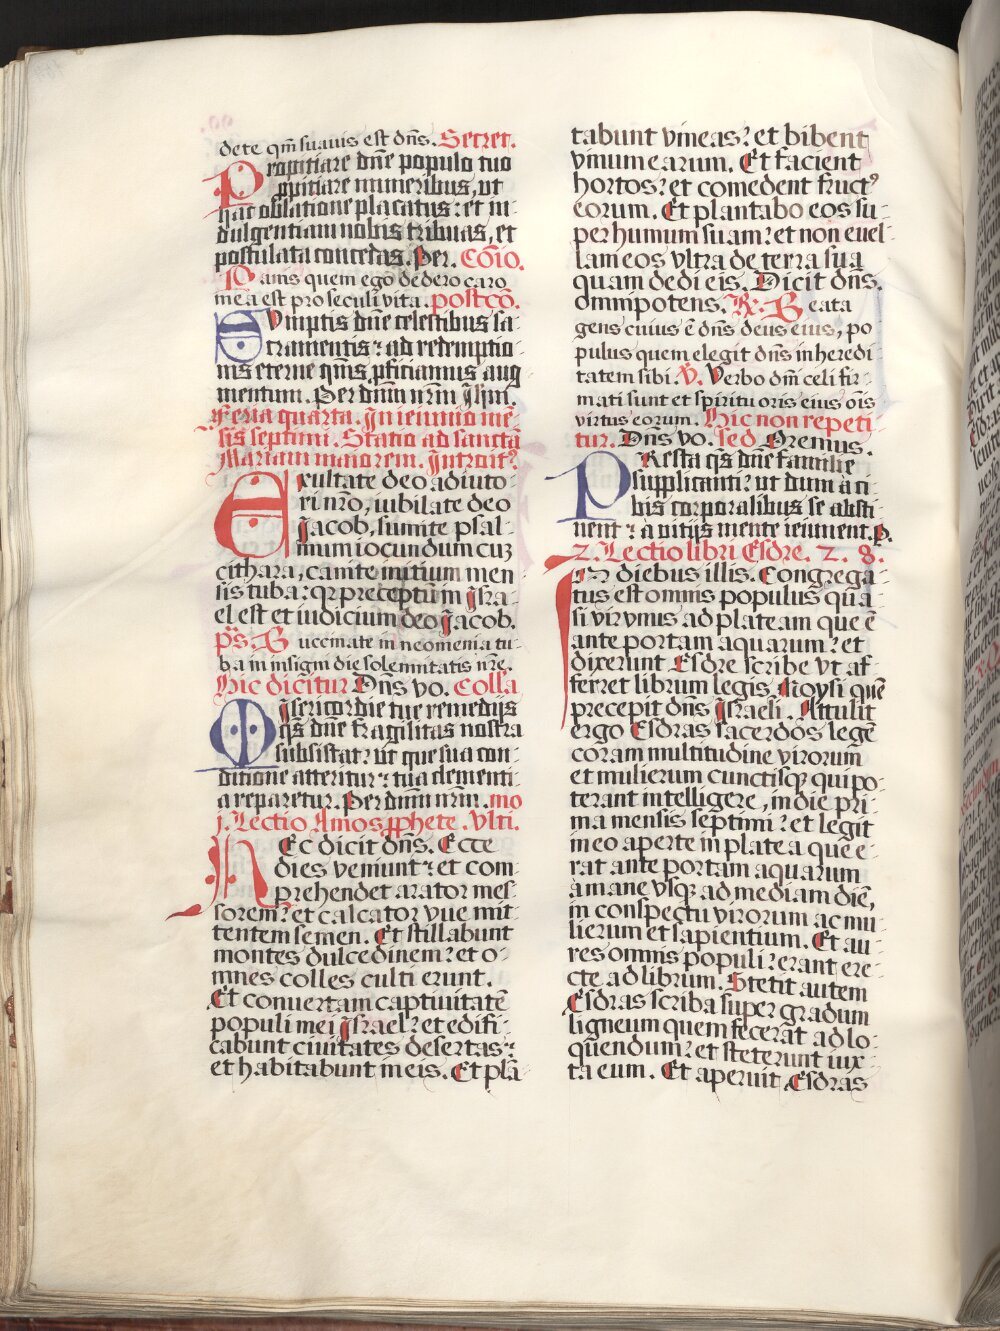 dete qm̃ suauis est dñs. Secret.
Propitiare dñe populo tuo
ꝓpitiare muneribus, ut
hac oblatione placatus: et in-
dulgentiam nobis tribuas, et
postulata concedas. Per. Cõio.
Panis quem ego dedero caro
mea est pro seculi vita. postcõ.
SVmptis dñe celestibus sa-
cramentis: ad redemptio-
nis eterne q̃s, ꝓficiamus aug-
mentum. Per dñm nr̃m Jħm.
Feria quarta. In ieiunio mẽ-
sis septimi. Statio ad sancta
Mariam maiorem. Introit⁹.
Exultate deo adiuto-
ri nr̃o, iubilate deo
Jacob, sumite psal-
mum iocundum cuz
cithara, canite initium men-
sis tuba: qr preceptum in Isra-
el est et iudicium deo Jacob.
p̃s. Buccinate in neomenia tu-
ba in insigni die solemnitatis nr̃e.
Hic dicitur Dñs vo. Colla
Misericordie tue remedijs
q̃s dñe fragilitas nostra
subsistat: ut que sua con-
ditione atteritur: tua clementi-
a reparetur. Per dñm nr̃m. mo
j. Lectio Amos ꝓphete. Vlti.
HEc dicit dñs. Ecce
dies veniunt: et com-
prehendet arator mes-
sorem: et calcator vue mit-
tentem semen. Et stillabunt
montes dulcedinem: et o-
mnes colles culti erunt.
Et conuertam captiuitatẽ
populi mei Israel: et edifi-
cabunt ciuitates desertas:
et habitabunt in eis. Et plã-
tabunt vineas: et bibent
vinum earum. Et facient
hortos: et comedent fruct⁹
eorum. Et plantabo eos su-
per humum suam: et non euel-
lam eos vltra de terra sua
quam dedi eis. Dicit dñs.
omnipotens. R. Beata
gens cuius ẽ dñs deus eius, po-
pulus quem elegit dñs in heredi-
tatem sibi. V. Verbo dñi celi fir-
mati sunt et spiritu oris eius oĩs
virtus eorum. Hic non repeti-
tur. Dñs vo. sed Oremus.
PResta q̃s dñe familie
supplicanti: ut dum a ci-
bis corporalibus se absti-
nent: à vitijs mente ieiunent. P.
2. Lectio libri Esdre. 2. 8.
IN diebus illis. Congrega-
tus est omnis populus qua-
si vir vnus ad plateam que ẽ
ante portam aquarum: et
dixerunt Esdre scribe vt af-
ferret librum legis Moysi quẽ
precepit dñs Israeli. Attulit
ergo Esdras sacerdos legẽ
coram multitudine virorum
et mulierum cunctisq̃ qui po-
terant intelligere, in die pri-
ma mensis septimi: et legit
in eo aperte in platea que e-
rat ante portam aquarum
a mane vsq̃ ad mediam diẽ,
in conspectu virorum ac mu-
lierum et sapientium. Et au-
res omnis populi: erant ere-
cte ad librum. Stetit autem
Esdras scriba super gradum
ligneum quem fecerat ad lo-
q̃uendum: et steterunt iux-
ta eum. Et aperuit Esdras